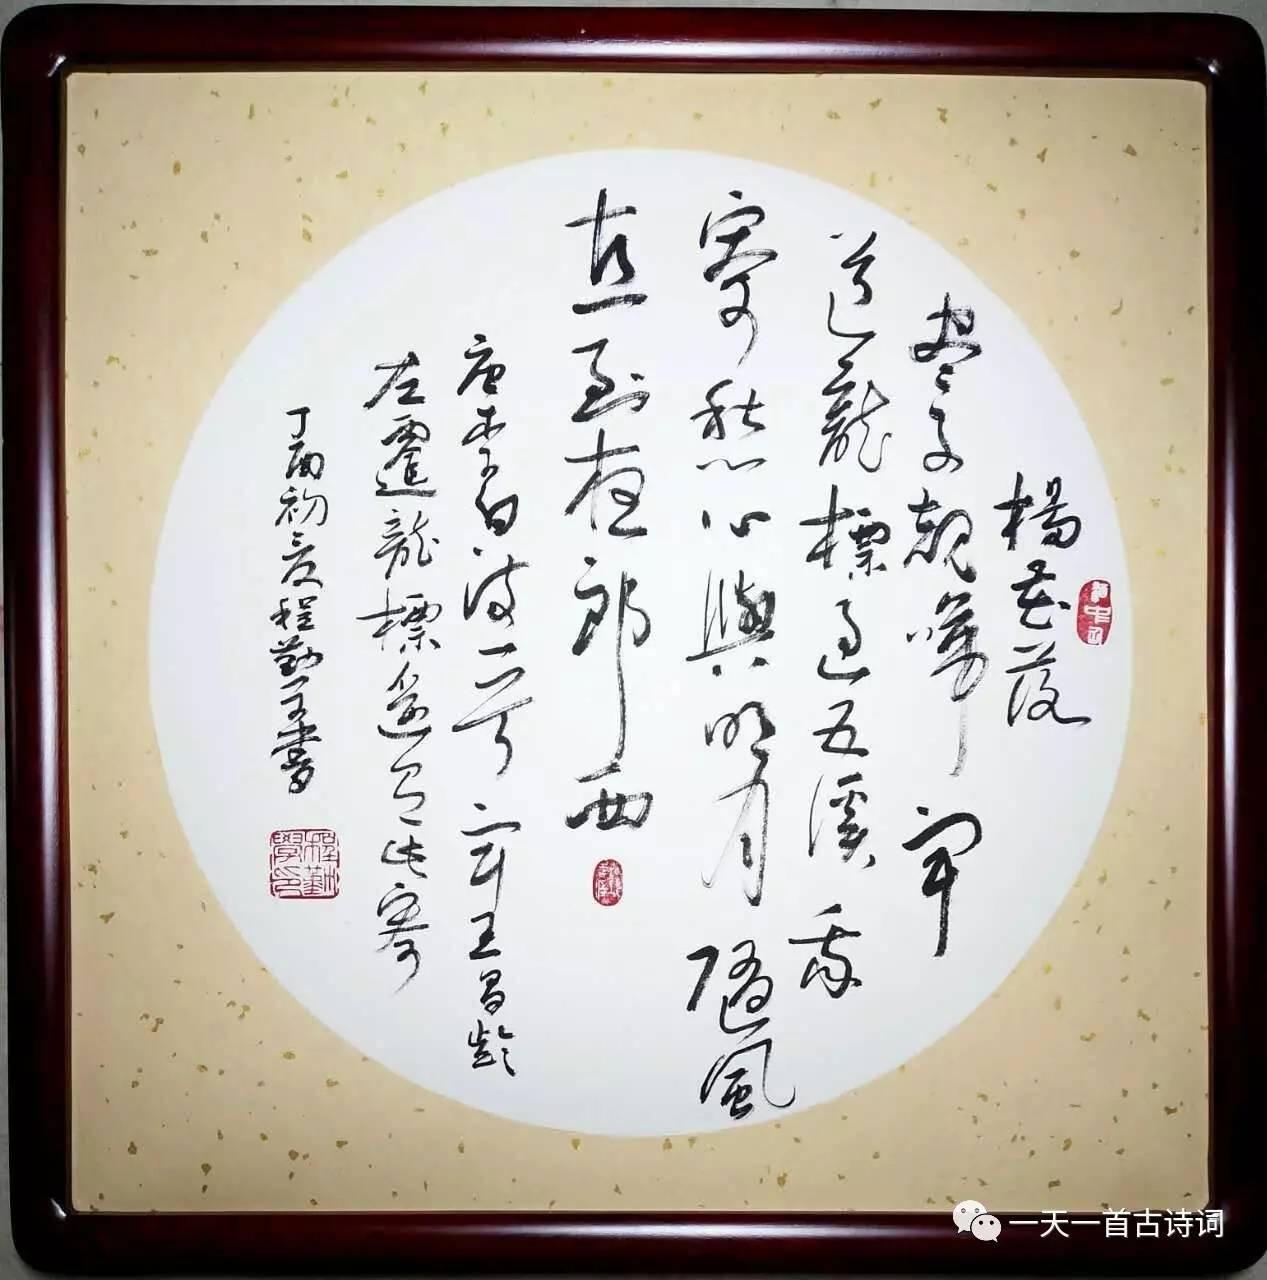 楊花落
盡子規啼聞
道龍標過五溪我
寄愁心與明月隨風
直到夜郎西
唐李白詩一首聞王昌齡
左遷龍標遙有此寄
丁酉初夏程勤学書
程勤學印
一天一首古诗词